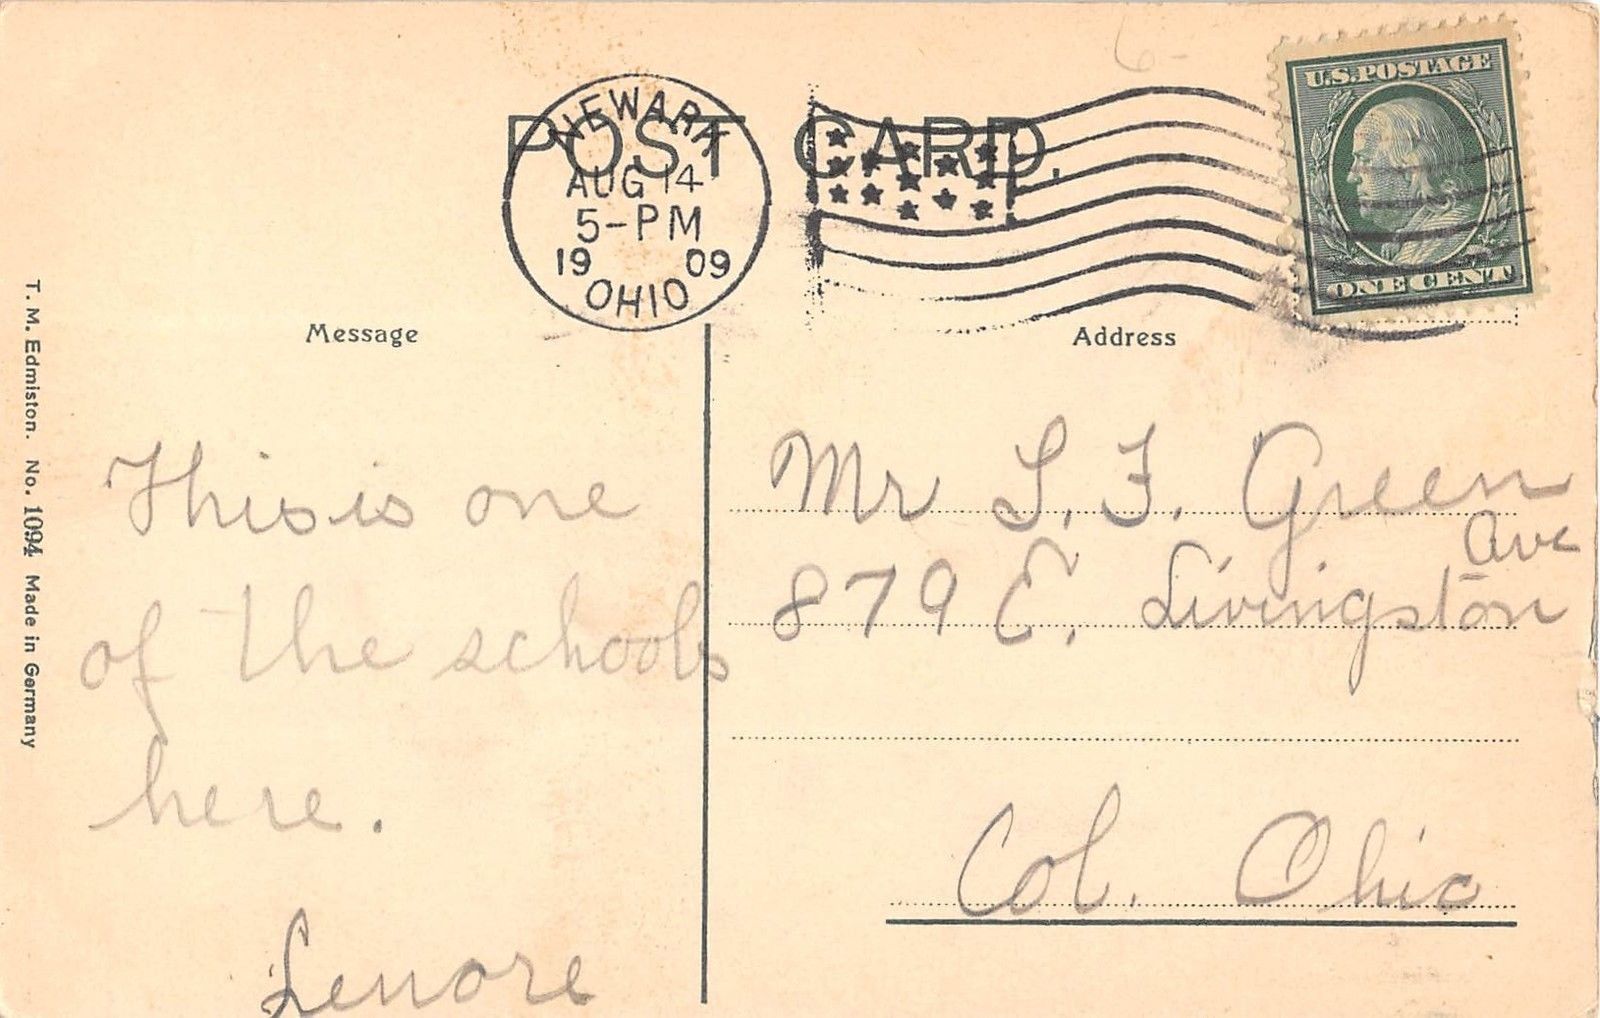 POST CARD.
NEWARK
AUG 14
5-PM
19 09
OHIO
6-
U.S. POSTAGE
ONE CENT
T. M. Edmiston. No. 1094 Made in Germany
Message
This is one
of the schools
here.
Lenore
Address
Mr L. F. Green
879 E. Livingston Ave
Col. Ohio